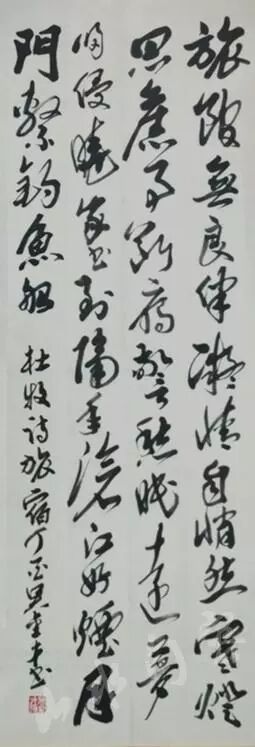 旅館無良伴凝情自悄然寒燈
思舊事斷雁警愁眠遠夢
歸侵曉家書到隔年滄江好煙月
門繫釣魚船
杜牧詩旅宿丁酉書